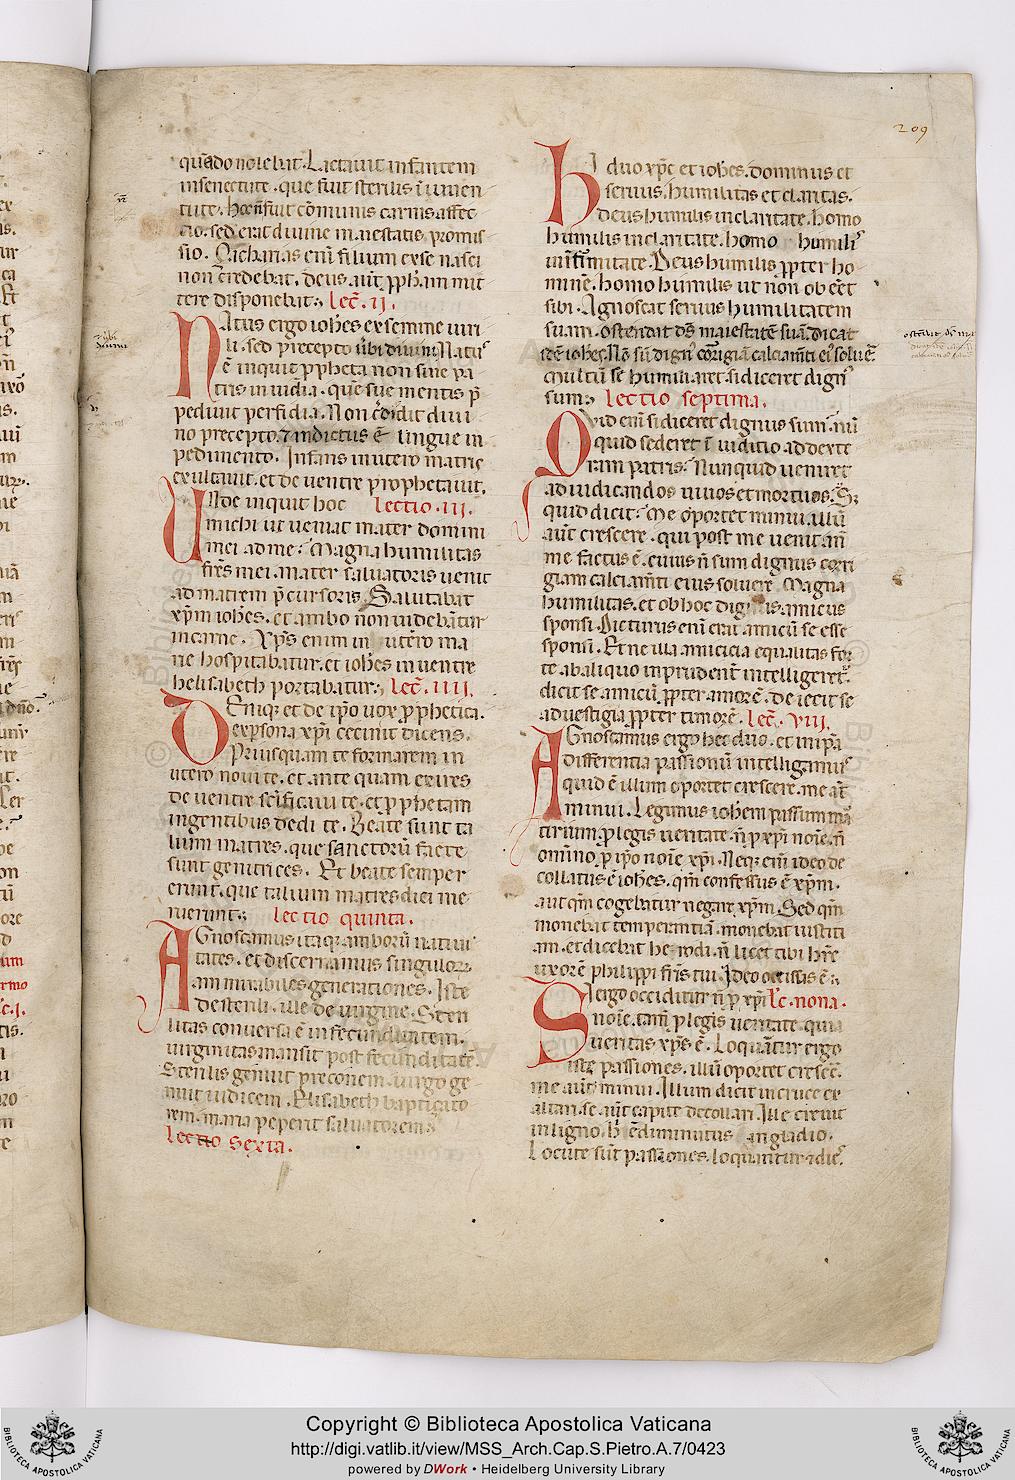 209
quãdo nolebat. Lactauit infantem
insenectute. que fuit sterilis ĩ iuuen
tute. hoc eñ fuit cõmunis carnis affec
tio. sed erat diuine maiestatis promis
sio. Zacharias eni filium ex se nasci
non credebat. deus aut̃ ꝓph̃am mit
tere disponebat. Lec̃. ii.
Natus ergo ioh̃es ex semine uiri
li. sed precepto diuini. Natus
ẽ inquit ꝓpheta non sine pa
tris inuidia. que sue mentis p̃
pediuit perfidia. Non credidit diui
no precepto. ⁊ indictus ẽ lingue in
pedimento. Infans inutero matris
exultauit. et de uentre prophetauit.
Unde inquit hoc lectio. iii.
michi ut ueniat mater domini
mei ad me? Magna humilitas
fr̃es mei. mater saluatoris uenit
ad matrem p̃cursoris. Salutabat
xp̃m ioh̃es. et ambo non uidebãtur
incarne. Xp̃s enim in utero ma
rie hospitabatur. et ioh̃es in uentre
helisabeth portabatur. Lec̃. iiii.
Deniq; et de ip̃o uox ꝓphetica.
ex ꝑsona xp̃i cecinit dicens.
Priusquam te formarem in
utero noui te. et ante quam exires
de uentre sc̃ificaui te. et ꝓphetam
ingentibus dedi te. Beate sunt ta
lium matres. que sanctorũ facte
sunt genitrices. Et beate semper
erunt. que talium matres dici me
ruerunt. lectio quinta.
Agnoscamus itaq; amborũ natiui
tates. et discernamus singulorꝝ
am mirabiles generationes. Iste
de sterili. ille de uirgine. Steri
litas conuersa ẽ in fecunditatem.
uirginitas mansit post fecunditatẽ
Sterilis genuit preconem. uirgo ge
nuit iudicem. Elisabeth baptizato
rem. maria peperit saluatorem.
lectio sexta.
Hi duo xp̃c et ioh̃es. dominus et
seruus. humilitas et claritas.
Deus humilis in claritate. homo
humilis in claritate. homo humilis
in infirmitate. Deus humilis ꝓpter ho
minẽ. homo humilis ut non obẽet
sibi. Agnoscat seruus humilitatem
suam. ostendat dñs maiestatẽ suã. Dicat
ioh̃es. Nõ sũ dignꝰ corrigiã calciam̃ti eiꝰ soluẽ.
Multũ se humiliaret. si diceret dignꝰ
sum. Lectio septima.
Quid eni si diceret dignus sum. nũ
quid sederet ĩ iuditio ad dexte
ram patris. Nunquid ueniret
ad iudicandos uiuos et mortuos. S;
quid dicit? Me oportet minui. illũ
aut̃ crescere. qui post me uenit. añ
me factus ẽ. cuius ñ sum dignus corri
giam calciam̃ti eius soluere. Magna
humilitas. et ob hoc amicus
sponsi. Dicturus eni erat amicũ se esse
sponsi. Et ne illa amicicia equalitas for
te ab aliquo inprudenti intelligeret.
dicit se amicũ ꝓpter amorẽ. deiecit se
ad uestigia ꝓpter timorẽ. lec̃. viii.
Agnoscamus ergo hec duo. et inip̃a
differentia passionũ intelligamus
quid ẽ illum oportet crescere. me aut̃
minui. Legimus ioh̃em passum mar
tirium. ꝓ legis ueritate. ñ ꝓ xp̃i nõie. ñ
omĩno ꝓ ip̃o nõie xp̃i. Neq; eni ideo de
collatus ẽ ioh̃es. qm̃ confessus ẽ xp̃m.
aut qm̃ cogebatur negare xp̃m. Sed qm̃
monebat temperantiã. monebat iustiti
am. et dicebat herodi. ñ licet tibi h̃re
uxorẽ philippi fr̃is tui. Ideo occisus ẽ.
Si ergo occiditur ñ ꝓ xp̃i Lc̃. nona.
nõie. tam̃ ꝓ legis ueritate. quia
ueritas xp̃s ẽ. Loquãtur ergo
iste passiones. illũ oportet crescẽ.
me aut̃ minui. Illum dicit in cruce ex
altari. se aut̃ capite decollari. Ille creuit
in ligno. hic ẽ diminutus in gladio.
Locute sũt passiones. loquantur ⁊ dies.
Copyright © Biblioteca Apostolica Vaticana
http://digi.vatlib.it/view/MSS_Arch.Cap.S.Pietro.A.7/0423
powered by DWork • Heidelberg University Library
BIBLIOTECA APOSTOLICA VATICANA
BIBLIOTECA APOSTOLICA VATICANA